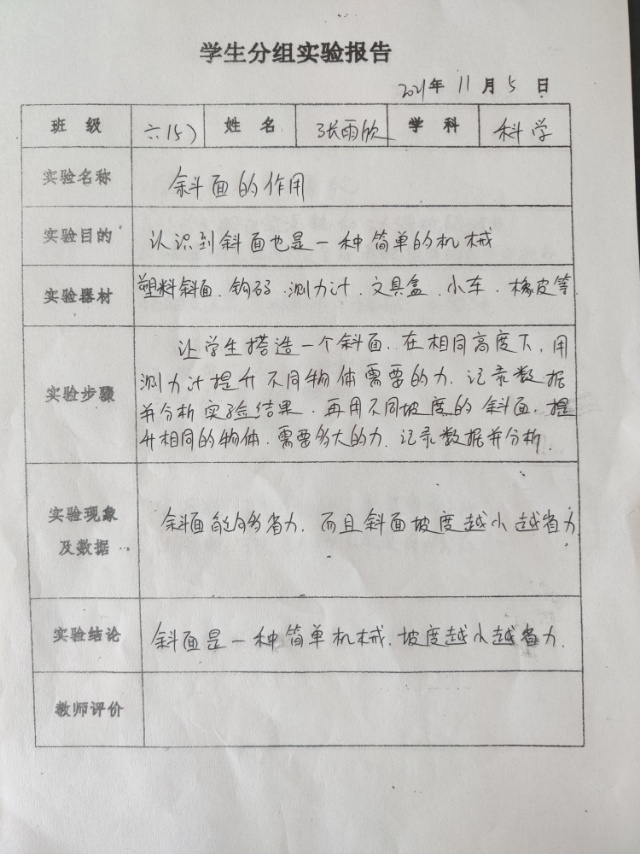 学生分组实验报告
2021年 11 月 5 日
班 级 六(5) 姓 名 张雨欣 学 科 科学
实验名称 斜面的作用
实验目的 认识到斜面也是一种简单的机械
实验器材 塑料斜面、钩码、测力计、文具盒、小车、橡皮等
让学生搭造一个斜面.在相同高度下,用
测力计提升不同物体需要的力.记录数据
实验步骤 并分析实验结果.再用不同坡度的斜面,提
升相同的物体.需要多大的力.记录数据并分析.
实验现象
及数据 斜面能够省力.而且斜面坡度越小越省力
实验结论 斜面是一种简单机械.坡度越小越省力.
教师评价